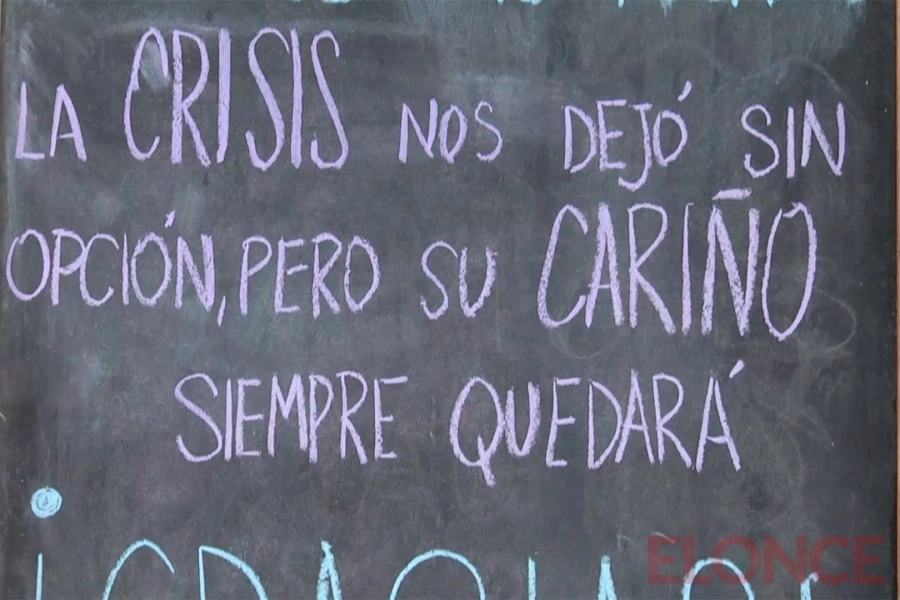 LA CRISIS NOS DEJÓ SIN
OPCIÓN, PERO SU CARIÑO
SIEMPRE QUEDARÁ
¡GRACIAS!
ELONCE